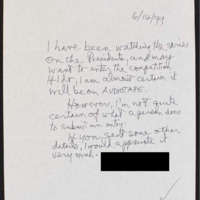 6/14/99
I have been watching the series
on the Presidents, and may
want to enter the competition.
I am almost certain it
will be on AUDIOTAPE.
However, I'm not quite
certain of what a person does
to submit an entry.
If you sent some other
details, I would appreciate it
very much.